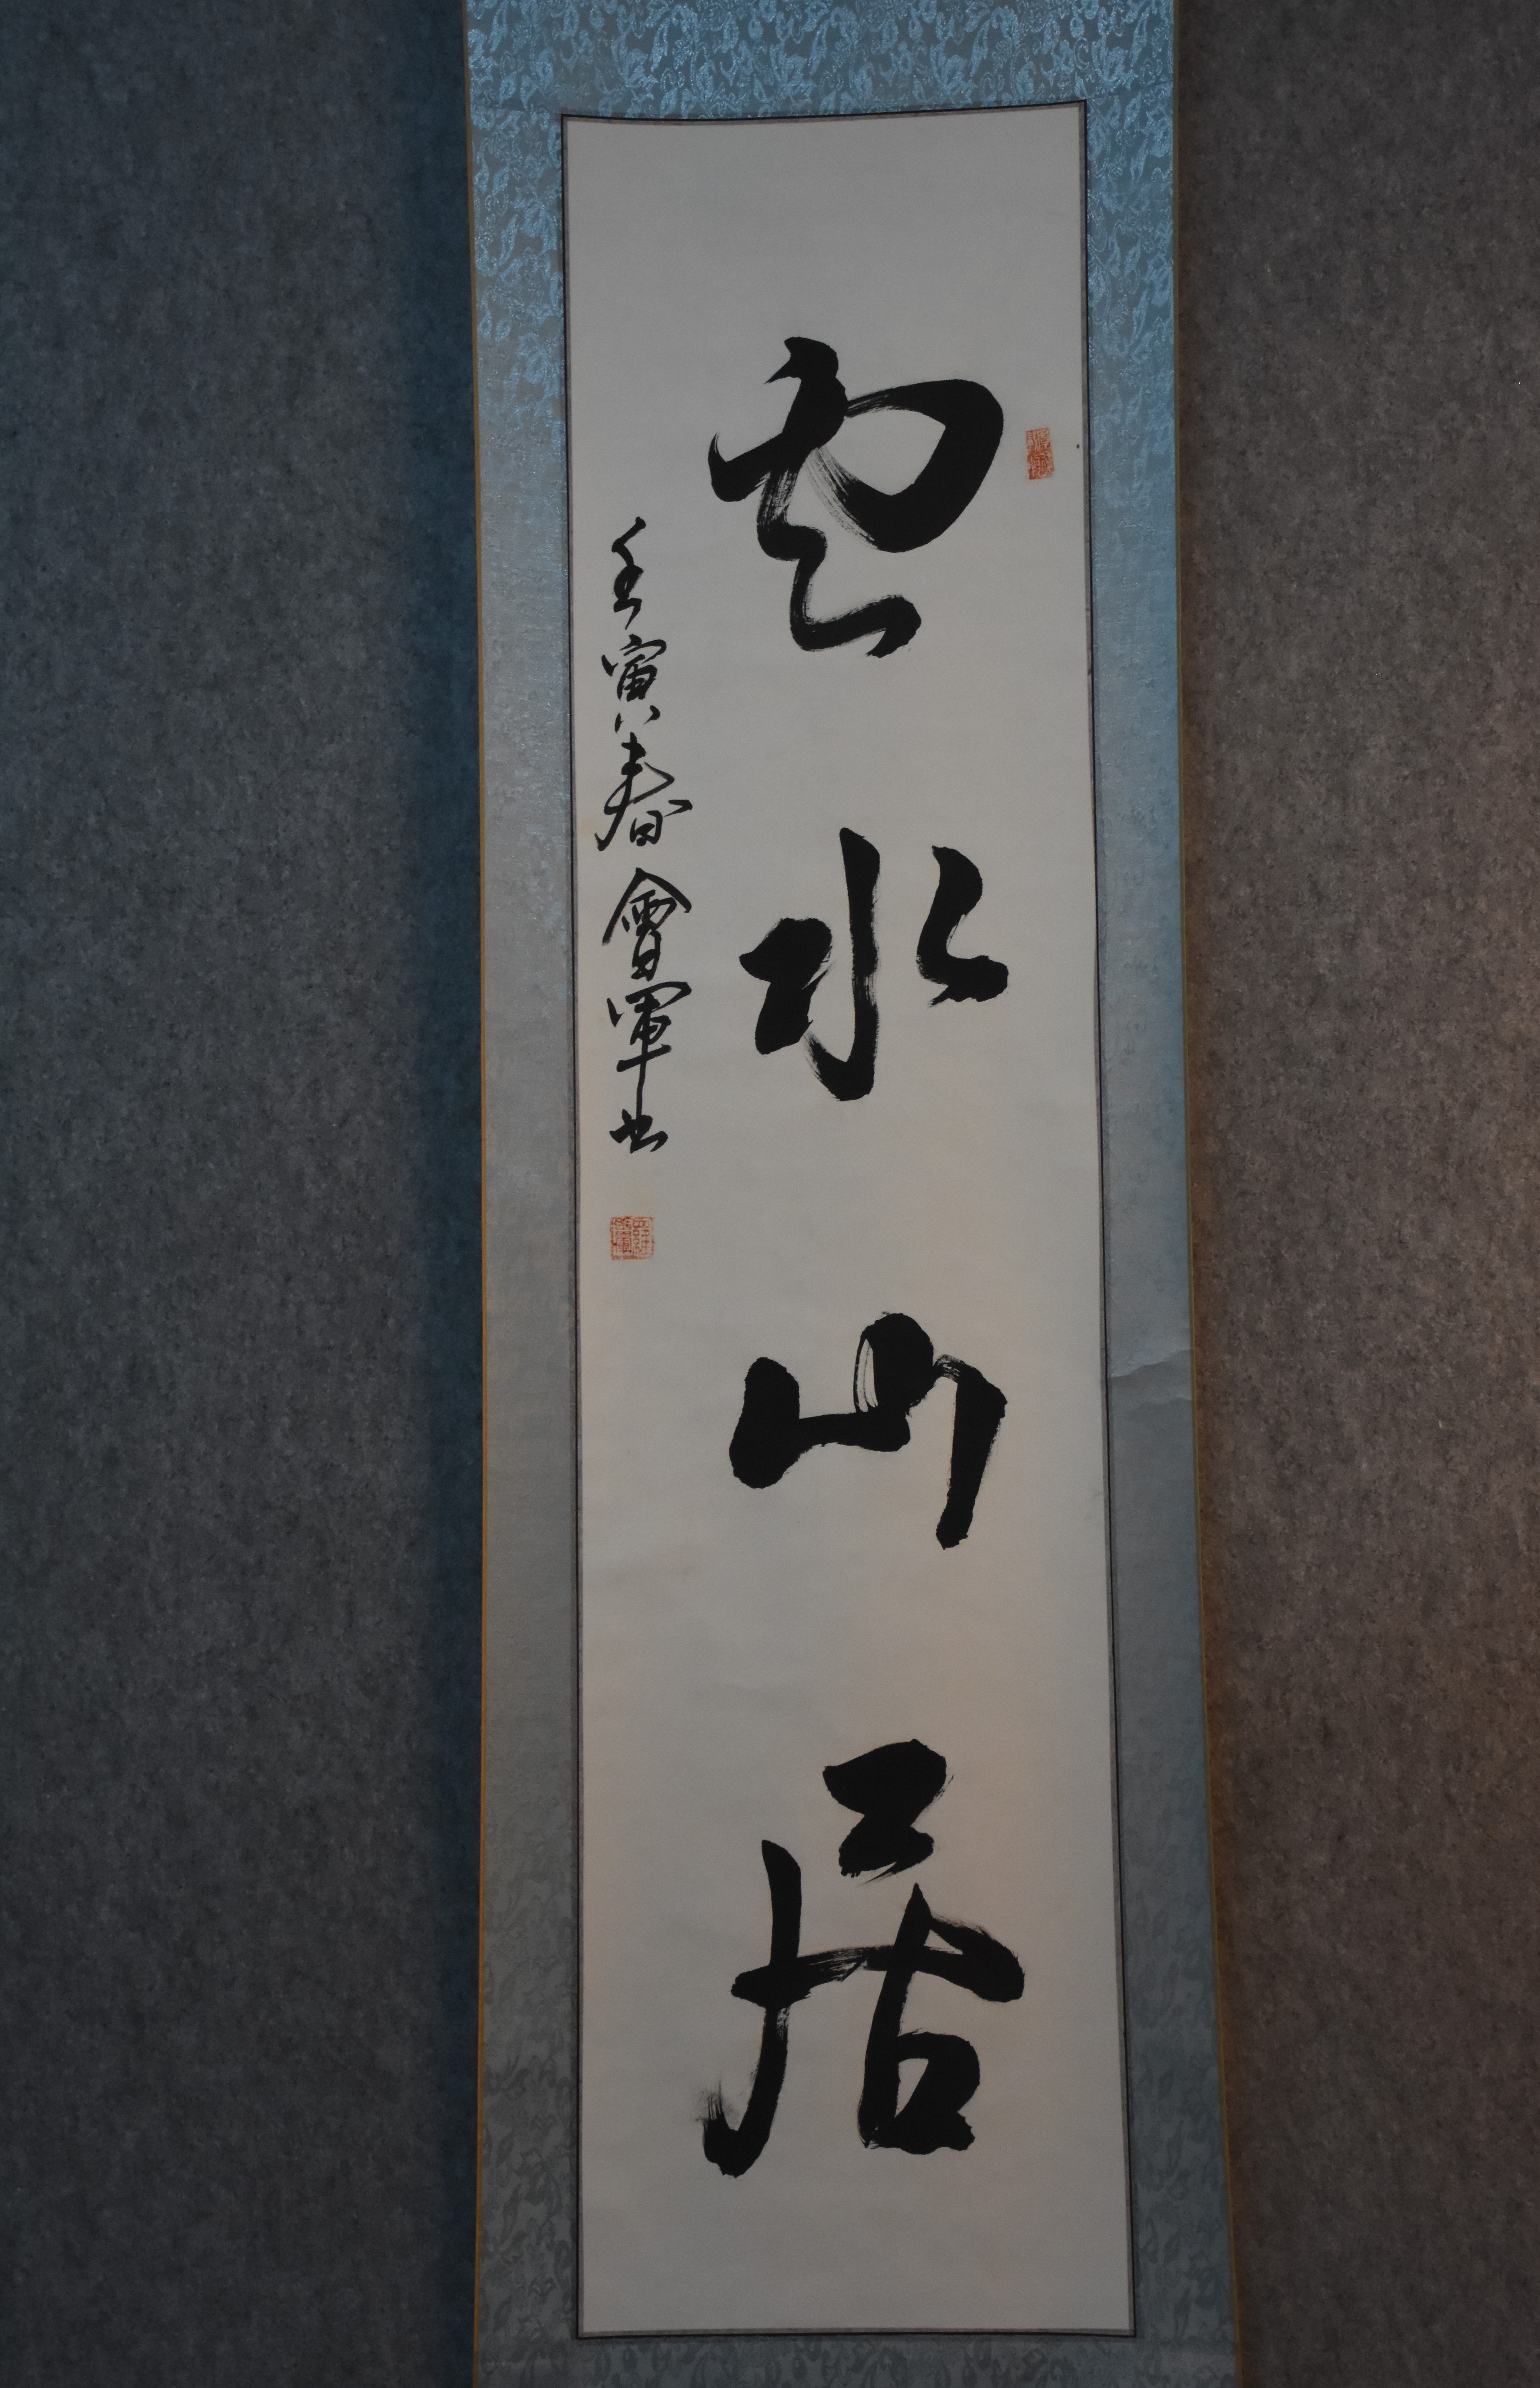 雲水山居
壬寅春會軍书